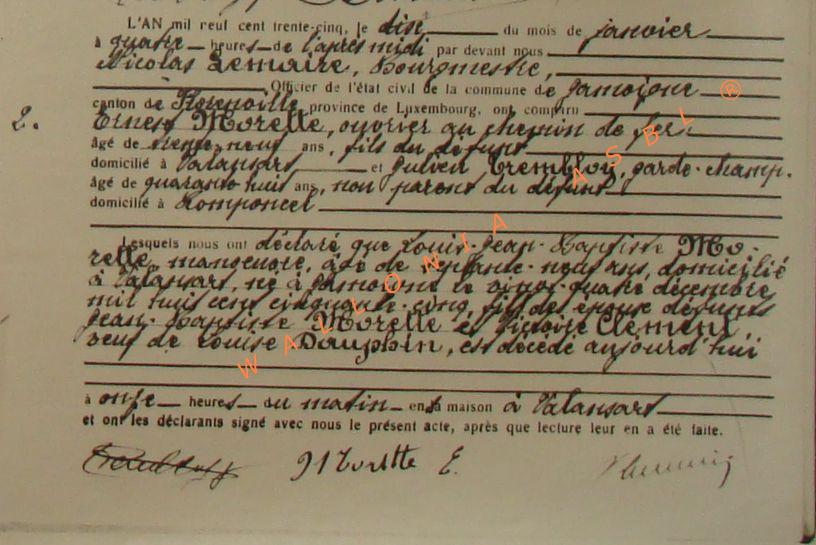 L'AN mil neuf cent trente-cinq, le dix du mois de janvier
à quatre heures de l'après midi par devant nous
Nicolas Lemaire, Bourgmestre,
Officier de l'état civil de la commune de Jamoigne
canton de Florenville province de Luxembourg, ont comparu
2. Ernest Morette, ouvrier au chemin de fer.
âgé de trente neuf ans, fils du défunt
domicilié à Valansart et Julien Trembloy, garde-champ.
âgé de quarante huit ans, non parent du défunt
domicilié à Romponcel
Lesquels nous ont déclaré que Louis-Jean-Baptiste Mo-
rette, manoeuvre, âgé de septante-neuf ans, domicilié
à Valansart, né à Jamoigne le vingt-quatre décembre
mil huit cent cinquante-cinq, fils des époux défunts
Jean-Baptiste Morette et Victoire Clément,
veuf de Louise Dauphin, est décédé aujourd'hui
à onze heures du matin en sa maison à Valansart
et ont les déclarants signé avec nous le présent acte, après que lecture leur en a été faite.
Morette E.
WALLONIA ASBL ®